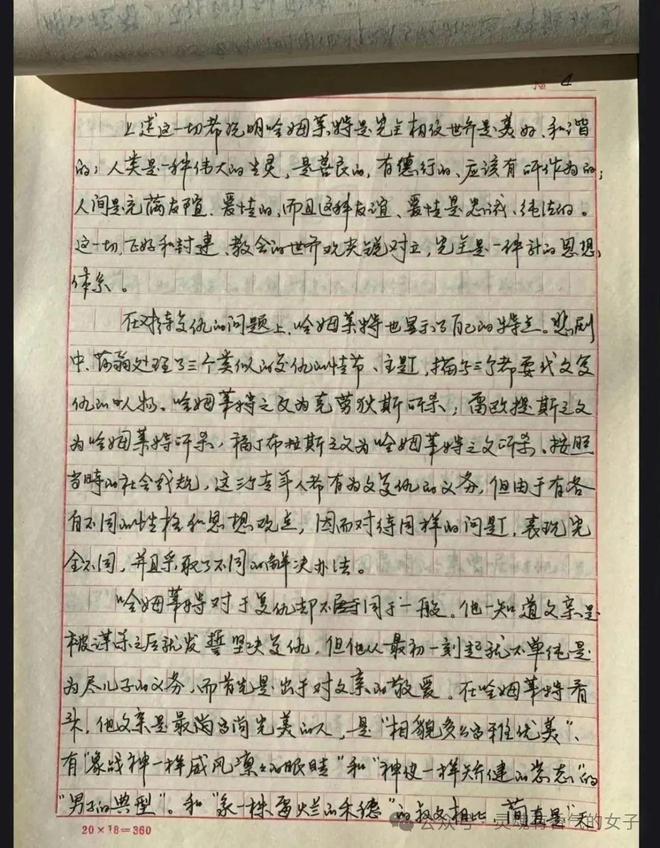 No 4
上述这一切都说明哈姆莱特是完全相信世界是美好、和谐
的；人类是一种伟大的生灵，是善良的，有德行的、应该有所作为的；
人间是充满友谊、爱情的，而且这种友谊、爱情是忠诚、纯洁的。
这一切，正好和封建、教会的世界观尖锐对立，完全是一种新的思想
体系。
在对待复仇的问题上，哈姆莱特也显示了自己的特点。悲剧
中，莎翁处理了三个类似的复仇的情节、主题，描写三个都要代父复
仇的人物。哈姆莱特之父为克劳狄斯所杀，雷欧提斯之父
为哈姆莱特所杀，福丁布拉斯之父为哈姆莱特之父所杀。按照
当时的社会代规，这三个青年人都有为父复仇的义务，但由于有各
自不同的性格和思想观点，因而对待同样的问题，表现完
全不同，并且采取了不同的解决办法。
哈姆莱特对于复仇却不同于一般。他一知道父亲是
被谋杀之后就发誓坚决复仇，但他从最初一刻起就不单纯是
为尽儿子的义务，而首先是出于对父亲的敬爱。在哈姆莱特看
来，他父亲是最高尚完美的人，是"相貌多么高雅优美"、
有"象战神一样威风凛凛的眼睛"和"神使一样矫健的姿态"的
"男子的典型"。和"象一株霉烂的禾穗"的叔父相比，简直是"天
20×18=360
公众号·灵魂有香气的女子